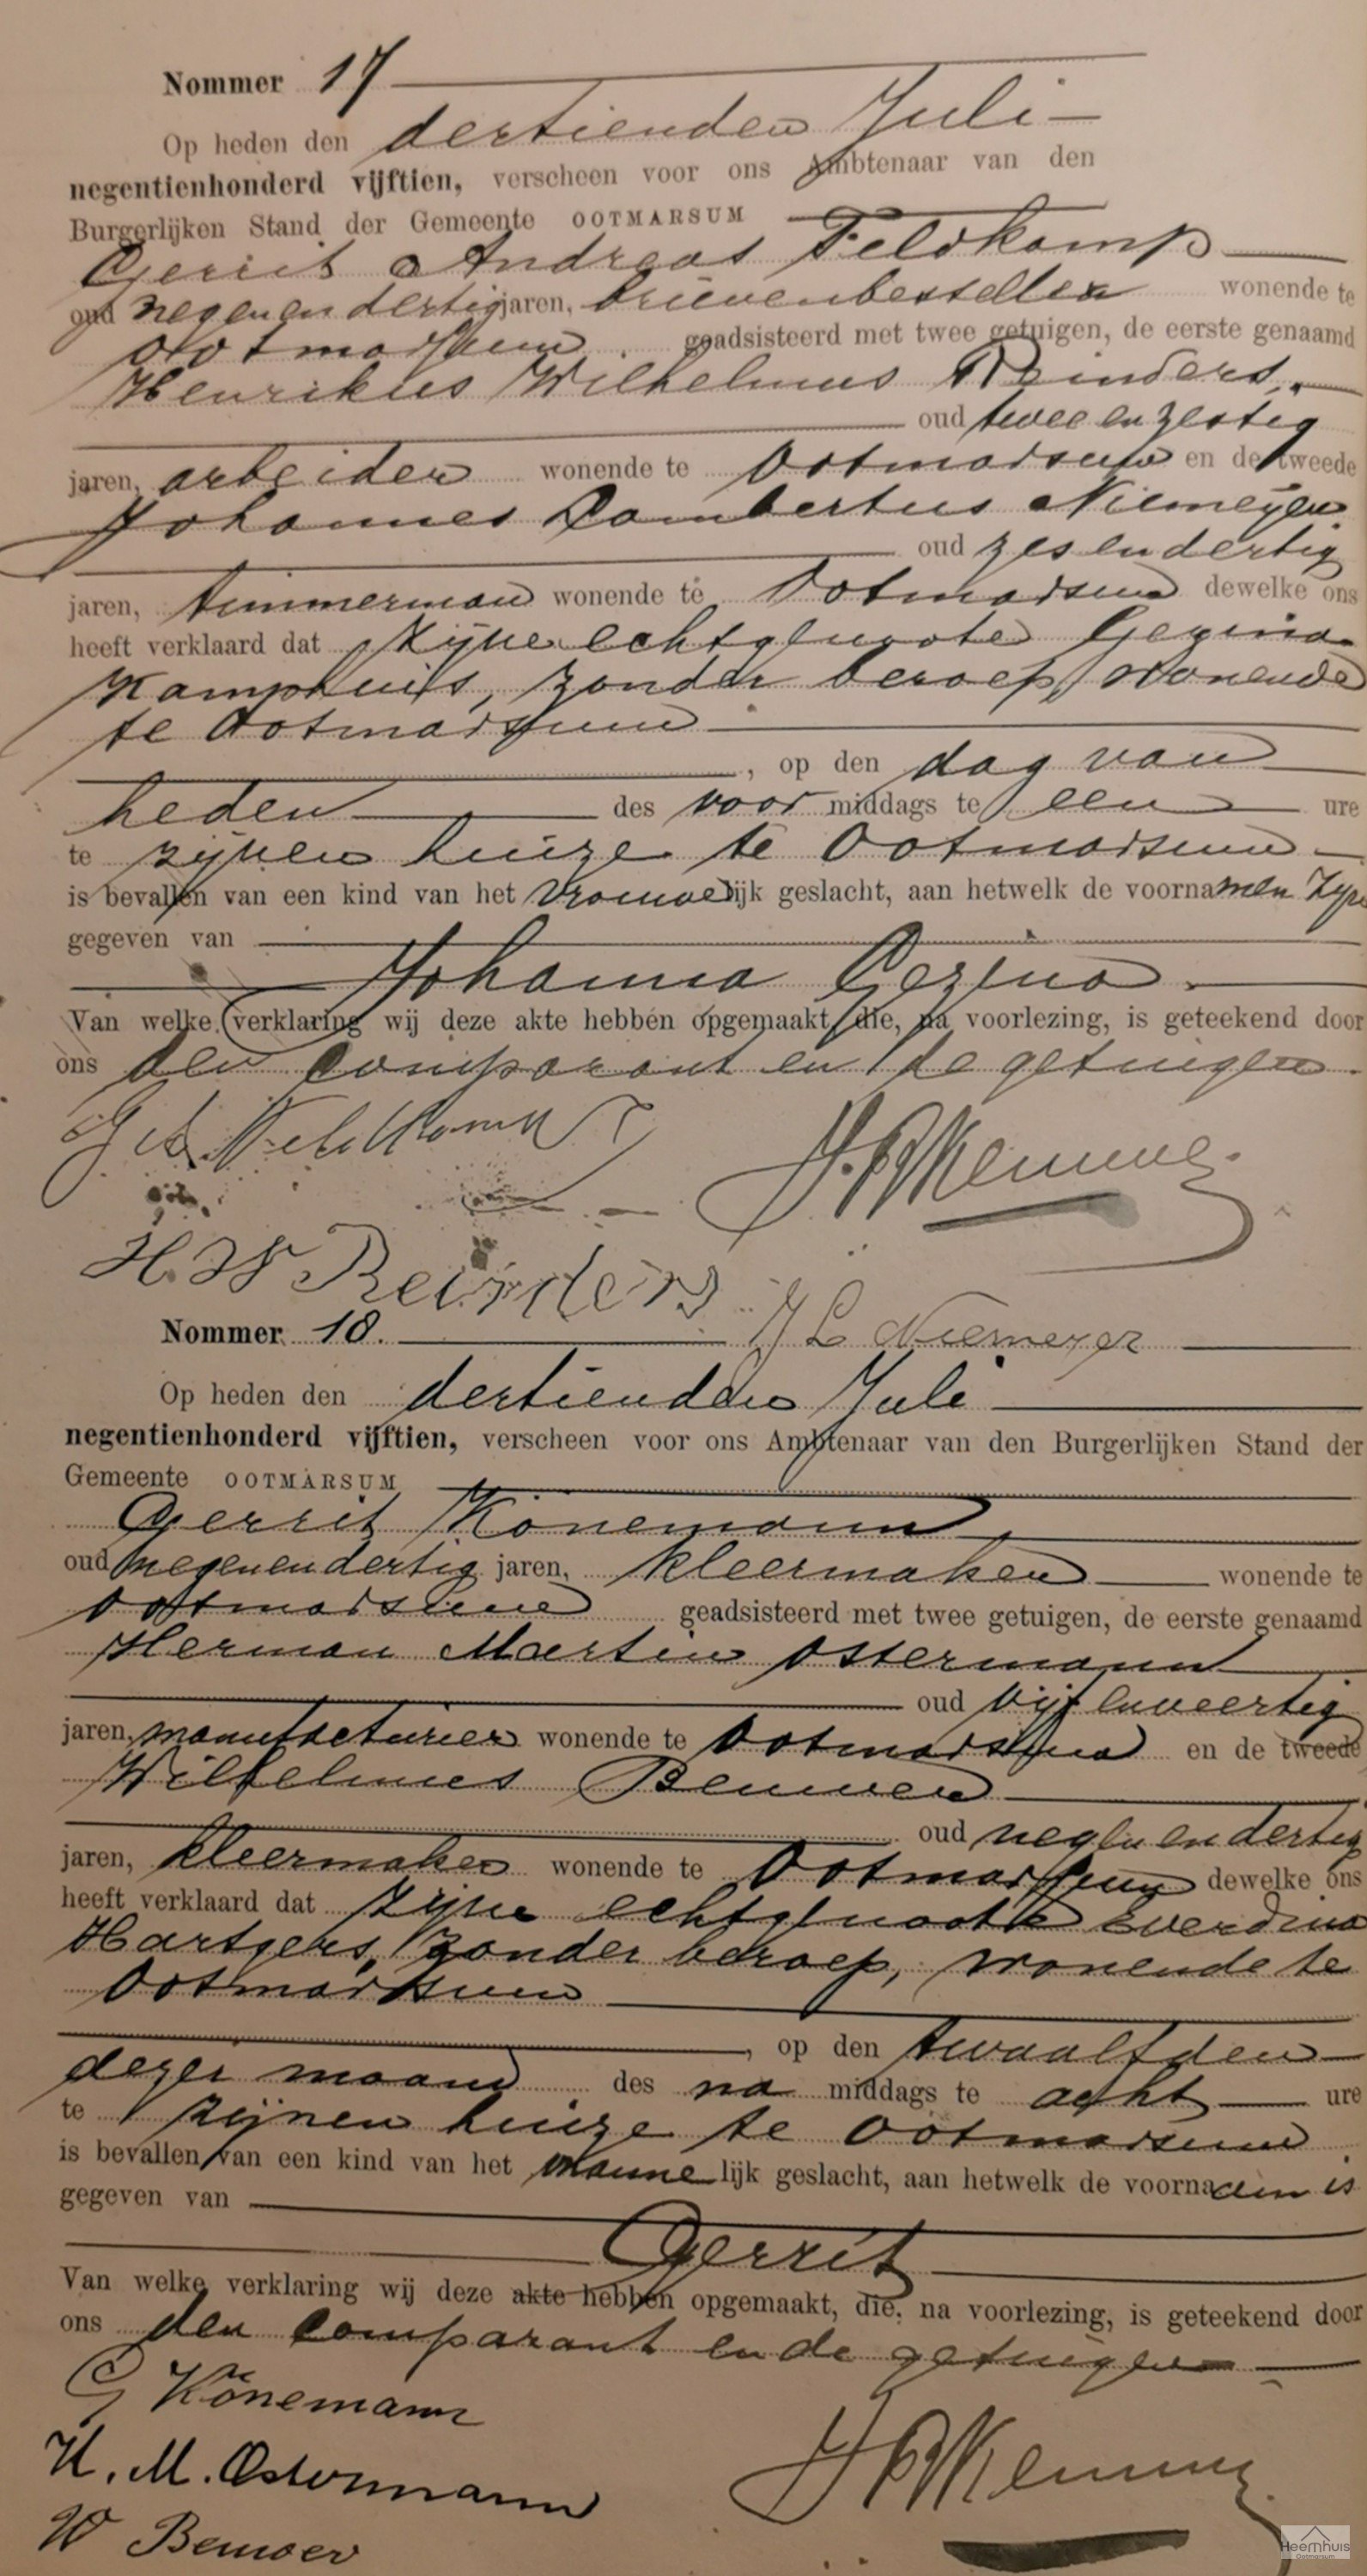 Nommer 17
Op heden den dertienden Juli
negentienhonderd vijftien, verscheen voor ons Ambtenaar van den
Burgerlijken Stand der Gemeente OOTMARSUM
Gerrit Andreas Feldkamp
oud negenendertig jaren, brievenbesteller wonende te
Ootmarsum geadsisteerd met twee getuigen, de eerste genaamd
Henrikus Wilhelmus Reinders,
oud twee en zestig
jaren, arbeider wonende te Ootmarsum en de tweede
Johannes Lambertus Niemeyer
oud zes en dertig
jaren, timmerman wonende te Ootmarsum dewelke ons
heeft verklaard dat zijne echtgenoote Gezina
Kamphuis, zonder beroep, wonende
te Ootmarsum
, op den dag van
heden des voor middags te een ure
te zijnen huize te Ootmarsum
is bevallen van een kind van het vrouwelijk geslacht, aan hetwelk de voornamen zijn
gegeven van
Johanna Gezina.
Van welke verklaring wij deze akte hebben opgemaakt, die, na voorlezing, is geteekend door
ons den comparant en de getuigen.
G A Veldkamp
H. W Reinders
J L Niemeyer
Nommer 18.
Op heden den dertienden Juli
negentienhonderd vijftien, verscheen voor ons Ambtenaar van den Burgerlijken Stand der
Gemeente OOTMARSUM
Gerrit Könemann,
oud negenendertig jaren, kleermaker wonende te
Ootmarsum geadsisteerd met twee getuigen, de eerste genaamd
Herman Martin Ostermann
oud vijf en veertig
jaren, manufacturier wonende te Ootmarsum en de tweede
Wilhelmus Benuwer
oud negen en dertig
jaren, kleermaker wonende te Ootmarsum dewelke ons
heeft verklaard dat zijne echtgenoote Everdina
Hartgers, zonder beroep, wonende te
Ootmarsum
, op den twaalfden
dezer maand des na middags te acht ure
te zijnen huize te Ootmarsum
is bevallen van een kind van het mannelijk geslacht, aan hetwelk de voornaam is
gegeven van
Gerrit
Van welke verklaring wij deze akte hebben opgemaakt, die, na voorlezing, is geteekend door
ons den comparant en de getuigen
G Könemann
H. M. Ostermann
W
Heemhuis
Ootmarsum